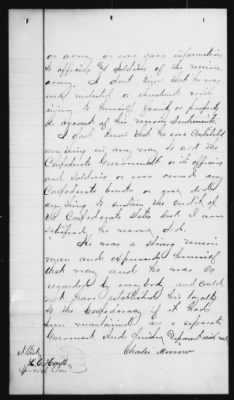 or army, or ever gave information
to officers or soldiers of the union
army. I dont know that he was
ever molested or threatened with
injury to himself family or property
on account of his union sentiments.
I dont know that he ever contributed
anything in any way to aid the
Confederate Government or its officers
and soldiers or ever owned any
Confederate bonds or ever did
anything to sustain the credit of
the Confederate States but I am
satisfied he never did.
He was a strong union
man and expressed himself
that way and he was so
regarded by everybody and could
not have established his loyalty
to the Confederacy if it had
been maintained as a separate
Government And further Deponent saith not
Charles Morrow
Attest
Special Com